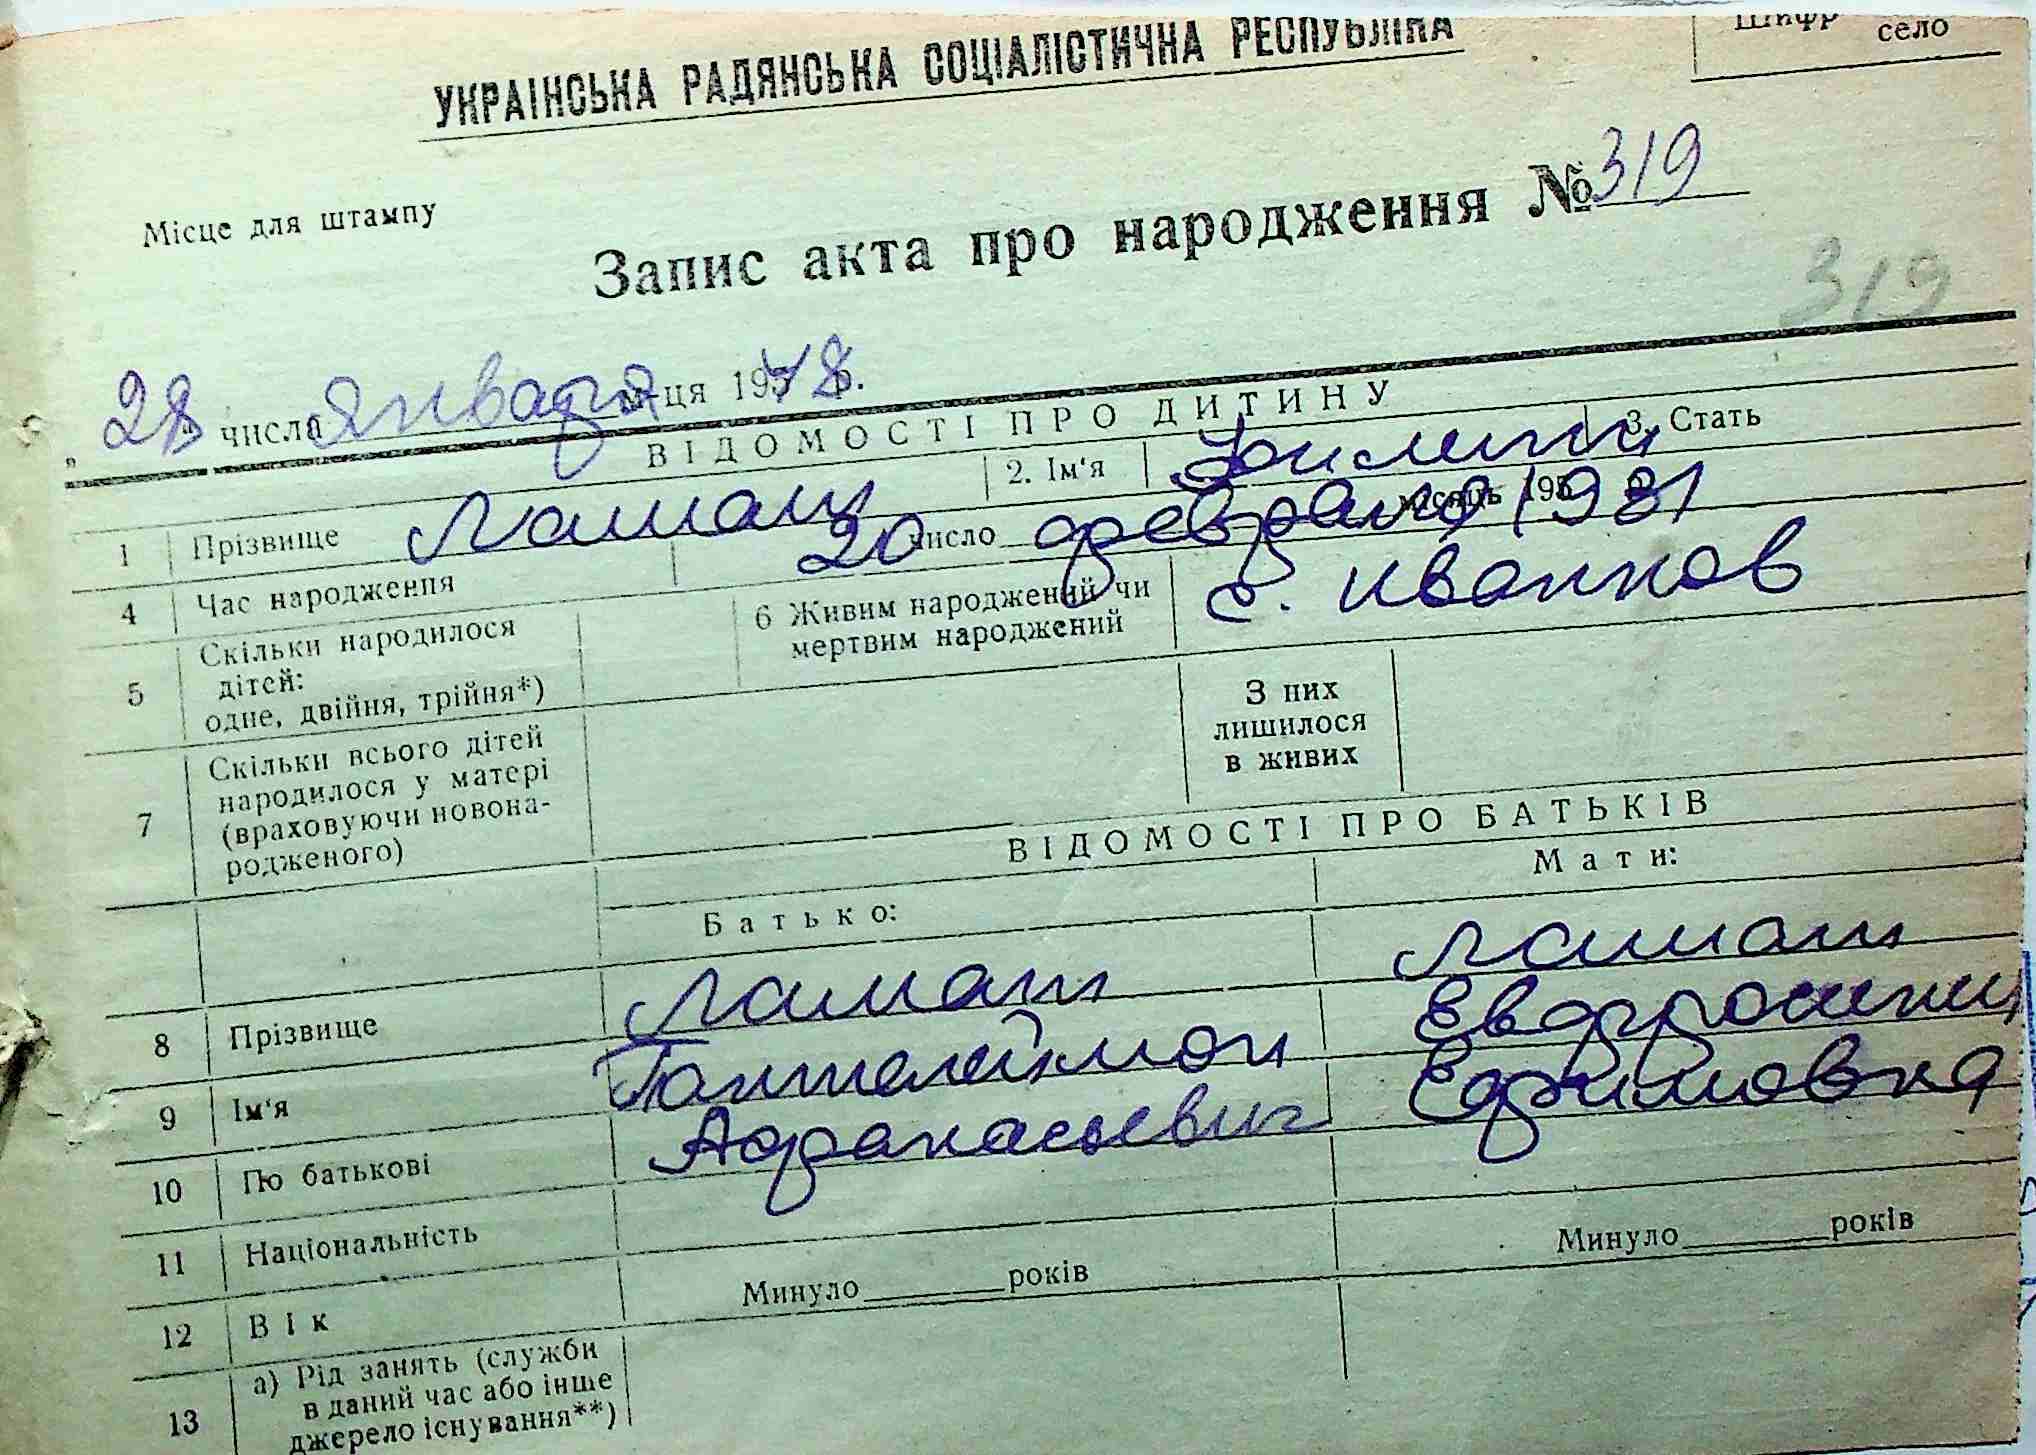 Шифр село
УКРАЇНСЬКА РАДЯНСЬКА СОЦІАЛІСТИЧНА РЕСПУБЛІКА
Місце для штампу
Запис акта про народження № 319
319
„28" числа января м-ця 1978 р.
ВІДОМОСТІ ПРО ДИТИНУ
1 Прізвище Ламаш 2. Ім'я 3. Стать
4 Час народження 20 число февраля місяць 195 1931
5 Скільки народилося дітей: одне, двійня, трійня*) 6 Живим народжений чи мертвим народжений с. Иванков
7 Скільки всього дітей народилося у матері (враховуючи новонародженого) З них лишилося в живих
ВІДОМОСТІ ПРО БАТЬКІВ
Батько: Мати:
8 Прізвище Ламаш Ламаш
9 Ім'я Пантелеймон Евфросиния
10 По батькові Афанасьевич Ефимовна
11 Національність
12 Вік Минуло ______ років Минуло ______ років
13 а) Рід занять (служби
в даний час або інше
джерело існування**)